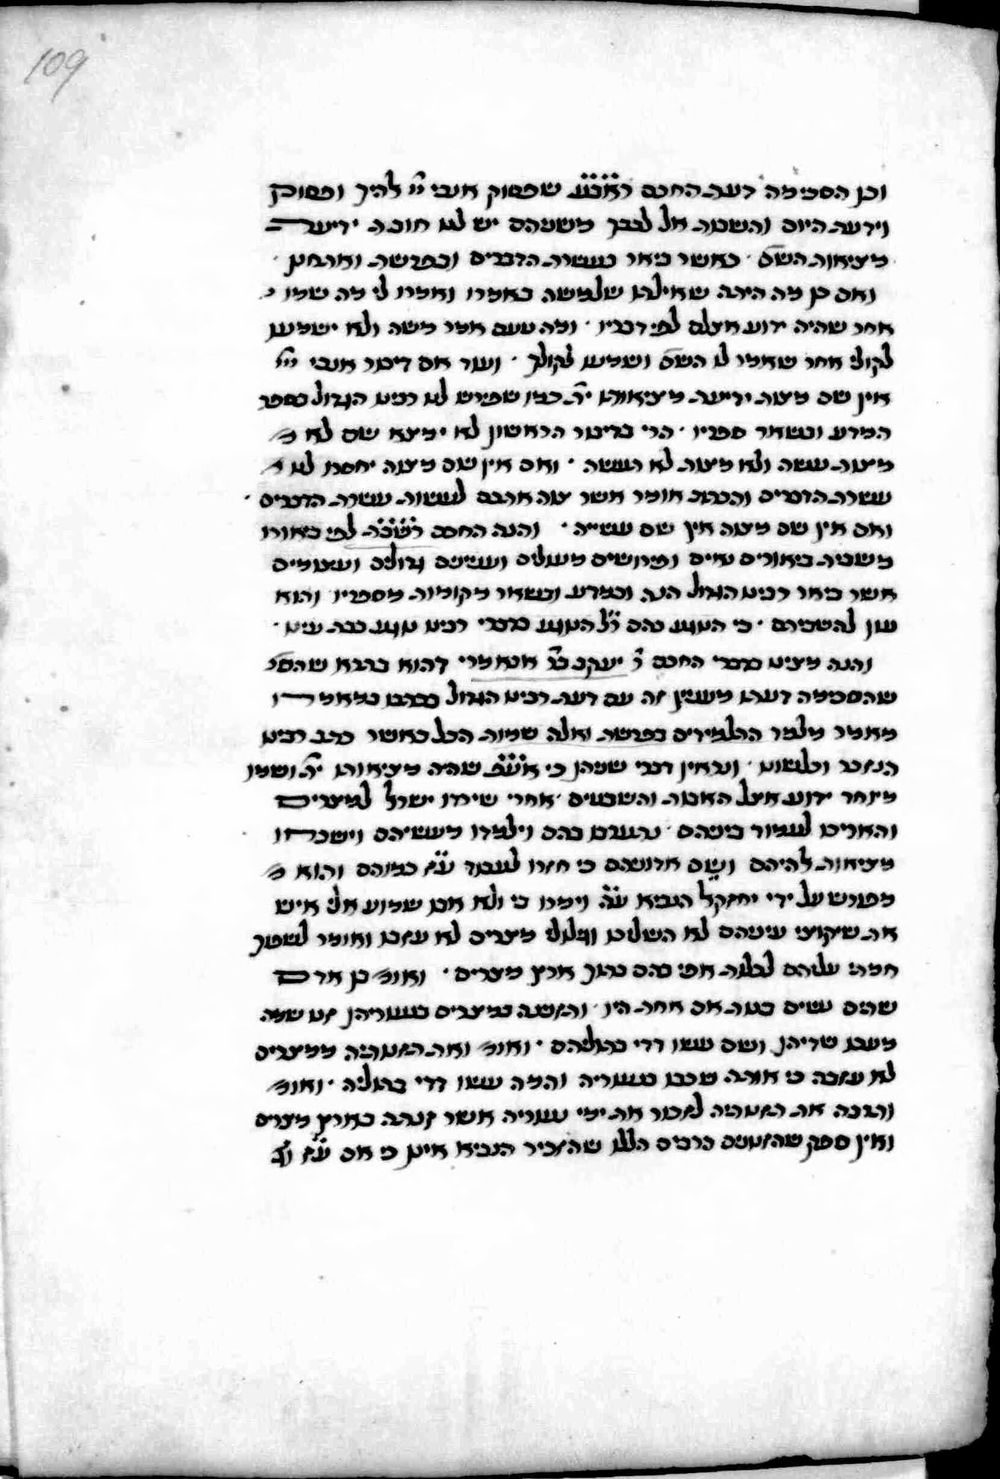 109
וכן הסכימה דעת החכם ראב״ע שפסוק אנכי יי׳ אלהיך ופסוק
וידעת היום והשבות אל לבבך משניהם יש לנו חובת ידיעת
מציאות השם · כאשר באר בעשרת הדברים ובפרשת ואתחנן ·
ואם כן מה היתה שאילתו של משה באמרו ואמרו לי מה שמו
אחר שהיה ידוע אצלם לפי דבריו · ומה טעם אמר משה ולא ישמעו
לקולי אחר שאמר לו השם ושמעו לקולך · ועוד אם דיבור אנכי יי׳
אין שם מצות ידיעת מציאותו ית׳ כמו שפירש לנו רבינו הגדול בספר
המדע ובשאר ספריו · הרי בדיבור הראשון לא ימצא שם לא
מצות עשה ולא מצות לא תעשה · ואם אין שם מצוה יחסרו לנו
עשרת הדברים והכתוב אומר אשר צוה אתכם לעשות עשרת הדברים ·
ואם אין שם מצוה אין שם עשייה · והנה החכם רשב״ת לפי באורו
משבית באורים נאים ופירושים מעולים ועניינים גדולים ועצומים
אשר באר רבינו הגדול הנה ובמדע ובשאר מקומות מספריו והוא
עון להשביתם · כי הטוען בהם ז״ל הטוען בדברי רבינו טוען כבר עיינו ·
והנה מצינו בדברי החכם ר׳ יעקב בר׳ אנאמרי דהוא ברבא שהסי
שהסכימה דעתו מענין זה עם דעת רבינו הגדול בכתבו במאמרו
מאמר מלמד התלמידים בפרשת ואלה שמות הכל כאשר כתב רבינו
הנזכר וכלשונו · ונראין דברי שניהן כי אעפ״י שהיה מציאותו ית׳ ושמו
מיוחד ידוע אצל האבות והשבטים · אחרי שירדו ישראל למצרים
והאריכו לעמוד ביניהם · נתערבו בהם וילמדו מעשיהם וישכחו
מציאות אלהיהם ושם אדוניהם כי חזרו לעבוד ע״ז כמוהם והוא
מפורש על ידי יחזקאל הנביא ע״ה וימרו בי ולא אבו שמוע אלי איש
את שיקוצי עיניהם לא השליכו וגלולי מצרים לא עזבו ואומר לשפוך
חמתי עליהם לכלות אפי בהם בתוך ארץ מצרים · ואומ׳ בן אדם
שתים נשים בנות אם אחת היו · ותזנינה במצרים בנעוריהן זנו שמה
מעכו שדיהן ושם עשו דדי בתוליהם · ואומ׳ ואת תזנותיה ממצרים
לא עזבה כי אותה שכבו בנעוריה והמה עשו דדי בתוליה · ואומ׳
ותרבה את תזנותיה לזכור את ימי נעוריה אשר זנתה בארץ מצרים
ואין ספק שהזנונים הרבים האלו שהזכיר הנביא אינן כי אם ע״ז